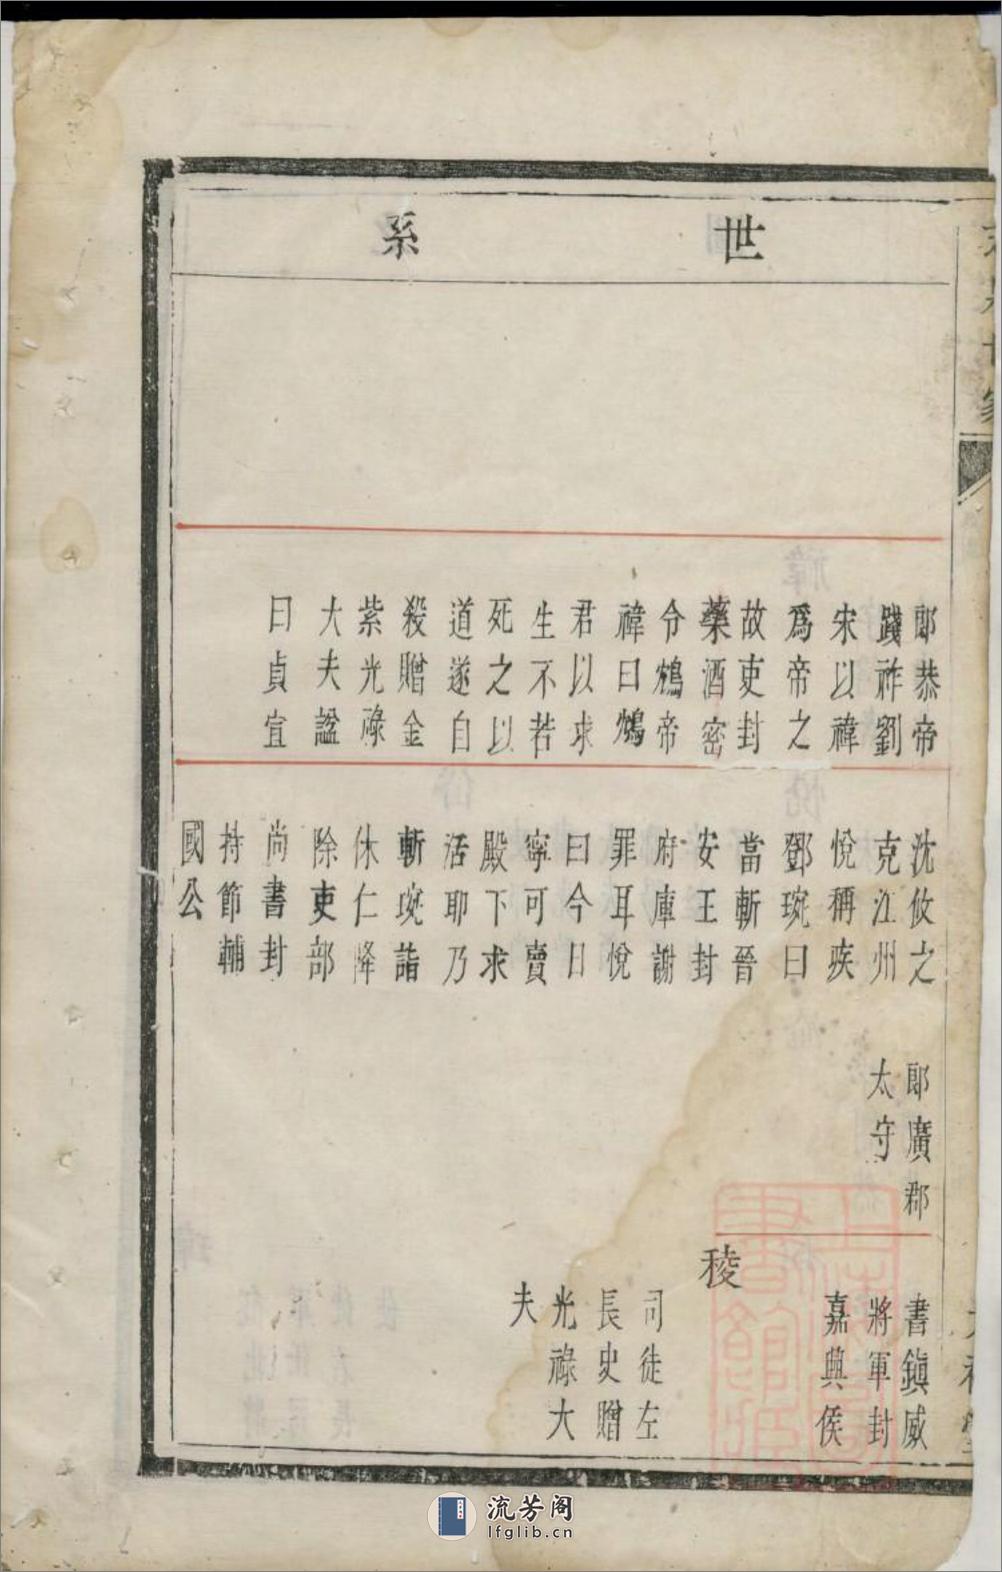 世系
郎恭帝
踐祚劉
宋以禕
爲帝之
故吏封
藥酒密
令鴆帝
禕曰鴆
君以求
生不若
死之以
道遂自
殺贈金
紫光祿
大夫諡
曰貞宜
沈攸之
克江州
悅稱疾
鄧琬曰
當斬晉
安王封
府庫謝
罪耳悅
曰今日
寧可賣
殿下求
活耶乃
斬琬詣
休仁降
除吏部
尚書封
持節輔
國公
郎廣郡
太守
書鎮威
將軍封
嘉興侯
稜
司徒左
長史贈
光祿大
夫
流芳阁
lfglib.cn